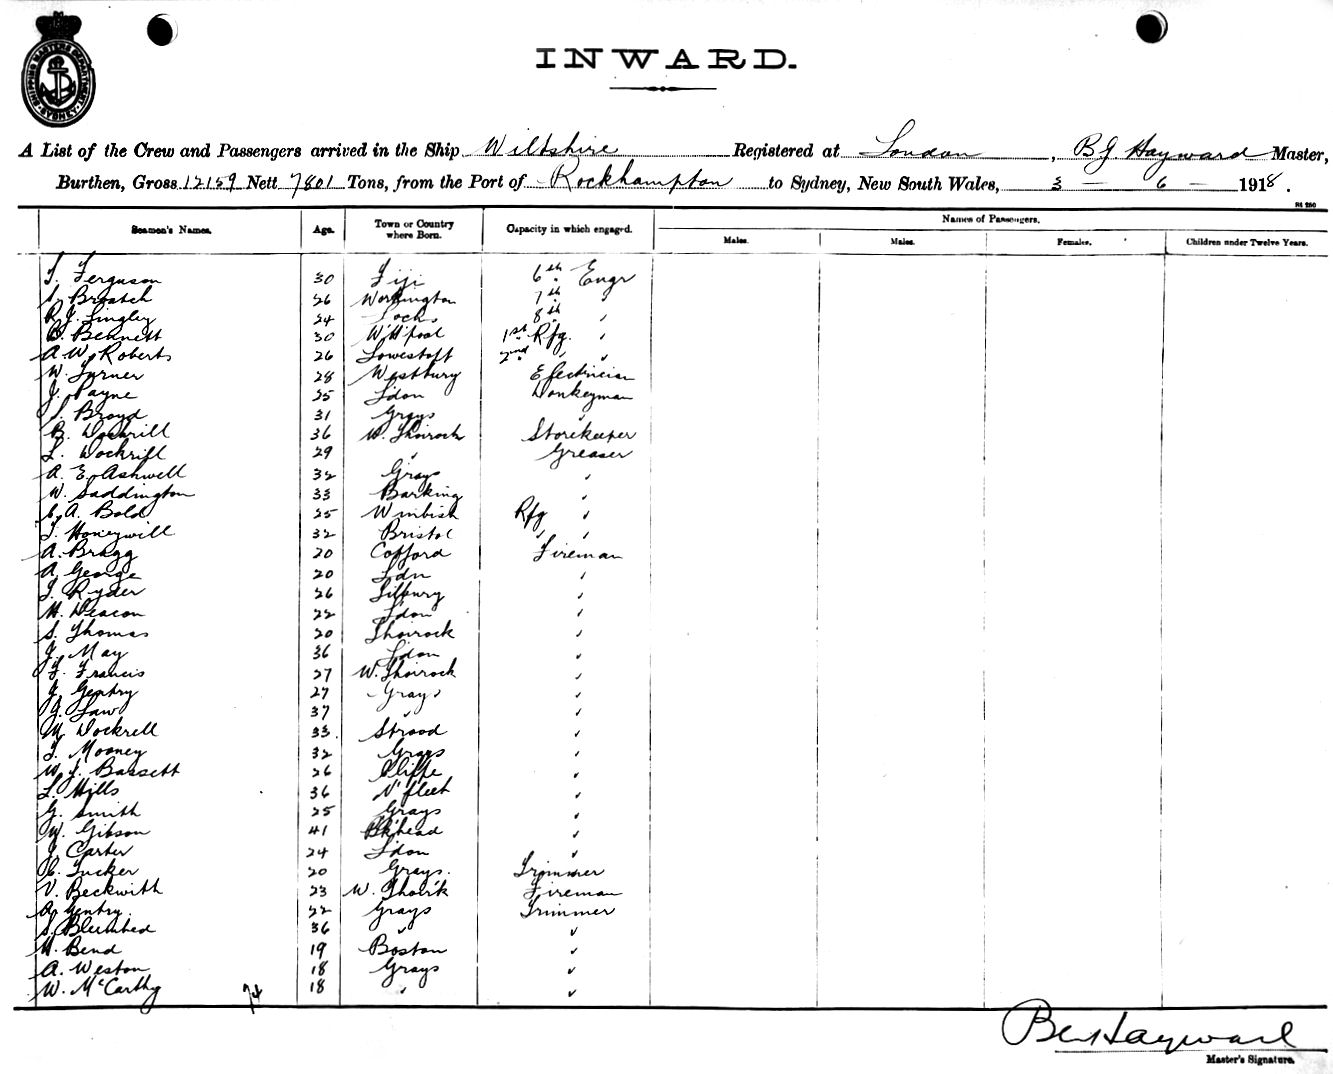 SHIPPING MASTERS DEPARTMENT SYDNEY
INWARD.
A List of the Crew and Passengers arrived in the Ship Wiltshire Registered at London, B.G. Hayward Master,
Burthen, Gross 12159 Nett 7801 Tons, from the Port of Rockhampton to Sydney, New South Wales, 3 — 6 — 1918.
Seamen's Names. Age. Town or Country where Born. Capacity in which engaged. Names of Passengers.
Males. Males. Females. Children under Twelve Years.
T. Ferguson 30 Fiji 6th Engr
Broatch 26 Workington 7th "
R. J. Lingley 24 8th "
B. Bennett 30 W'H'pool 1st Rfg. "
A. W. Roberts 26 Lowestoft 2nd " "
W. Turner 28 Westbury Electrician
J. Payne 25 L'don Donkeyman
S. Broyd 31 Grays "
B. Dockrill 36 W. Thorrock Storekeeper
L. Dockrill 29 " Greaser
A. E. Ashwell 32 Grays "
W. Saddington 33 Barking "
C. A. Bold 25 Wimbish Rfg "
T. Honeywill 32 Bristol " "
A. Bragg 20 Cofford Fireman
A. George 20 Ldn "
T. Ryder 26 Tilbury "
H. Deacon 22 L'don "
S. Thomas 20 Thorrock "
J. May 36 L'don "
F. Francis 27 W. Thorrock "
J. Gentry 27 Grays "
J. Law 37 " "
M. Dockrell 33 Strood "
T. Mooney 32 Grays "
W. J. Bassett 26 Cliffe "
L. Mills 36 N'fleet "
G. Smith 25 Grays "
W. Gibson 41 Bk'head "
J. Carter 24 L'don "
C. Tucker 20 Grays. Trimmer
V. Beckwith 23 W. Thor'k Fireman
A. Gentry. 22 Grays Trimmer
S. 36 " "
H. Bend 19 Boston "
A. Weston 18 Grays "
W. McCarthy 18 " "
74
Ben Hayward
Master's Signature.